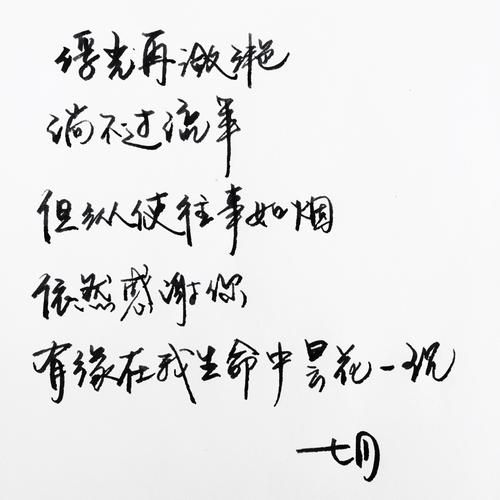 浮光再潋滟
淌不过流年
但纵使往事如烟
依然感谢你
有缘在我生命中昙花一现
七月